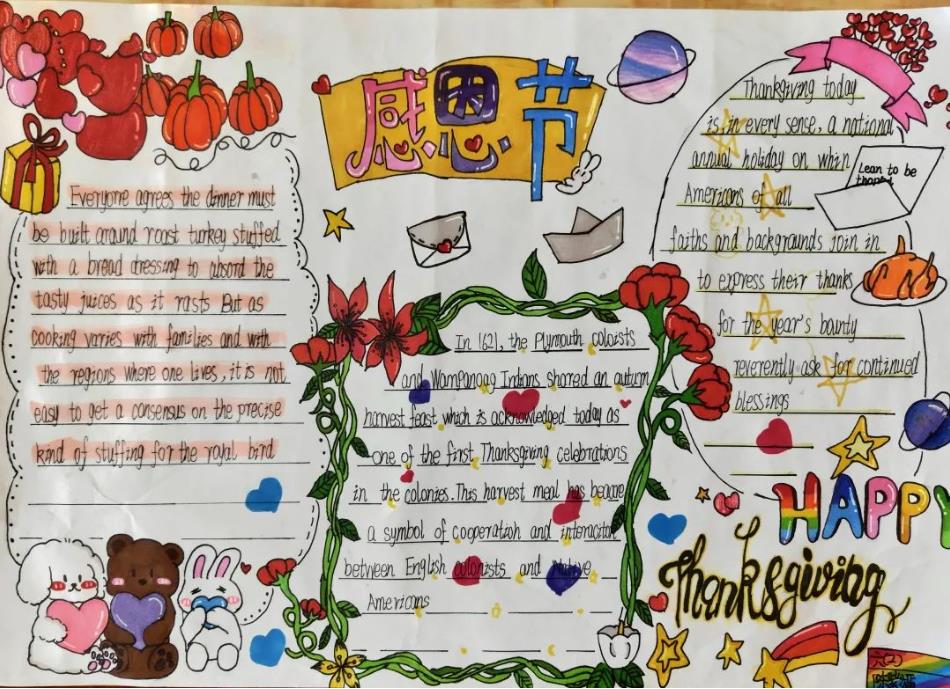 感恩节
Everyone agrees the dinner must
be built around roast turkey stuffed
with a bread dressing to absord the
tasty juices as it rasts But as
cooking varies with families and with
the regions where one lives, it is not
easy to get a consensus on the precise
kind of stuffing for the royal bird
In 1621, the Plymouth coloists
and Wampanoag Indians shared an autum
harvest feast which is acknowledged today as
one of the first Thanksgiving celebrations
in the colonies. This harvest meal has became
a symbol of cooperation and interaction
between English colonists and Native
Americans
Thanksgiving today
is, in every sense, a national
annual holiday on whin
Americans of all
faiths and backgrounds join in
to express their thanks
for the year's bounty
reverently ask for continued
blessings
Lean to be
HAPPY
Thanksgiving